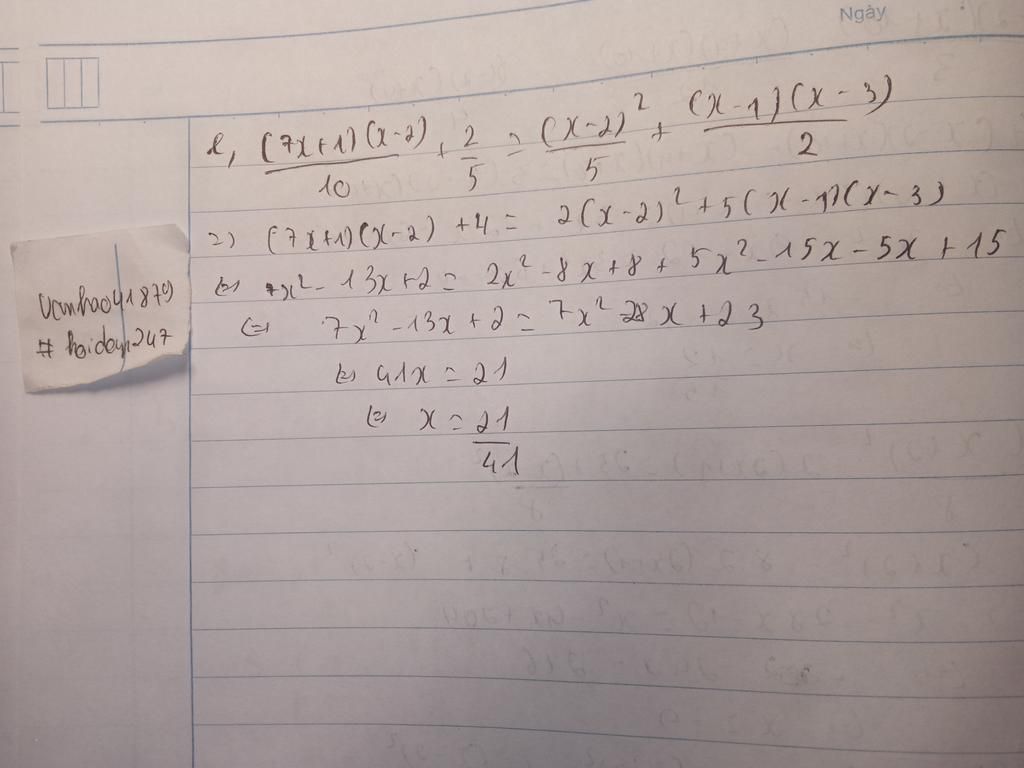 Ngày
l, (7x+1)(x-2)/10 + 2/5 = (x-2)²/5 + (x-1)(x-3)/2
=) (7x+1)(x-2) +4 = 2(x-2)² +5(x-1)(x-3)
(=) 7x² - 13x + 2 = 2x² - 8x + 8 + 5x² - 15x - 5x + 15
(=) 7x² - 13x + 2 = 7x² - 28x + 23
(=) 41x = 21
(=) x = 21/41
Vanhao41879
# hoidap247